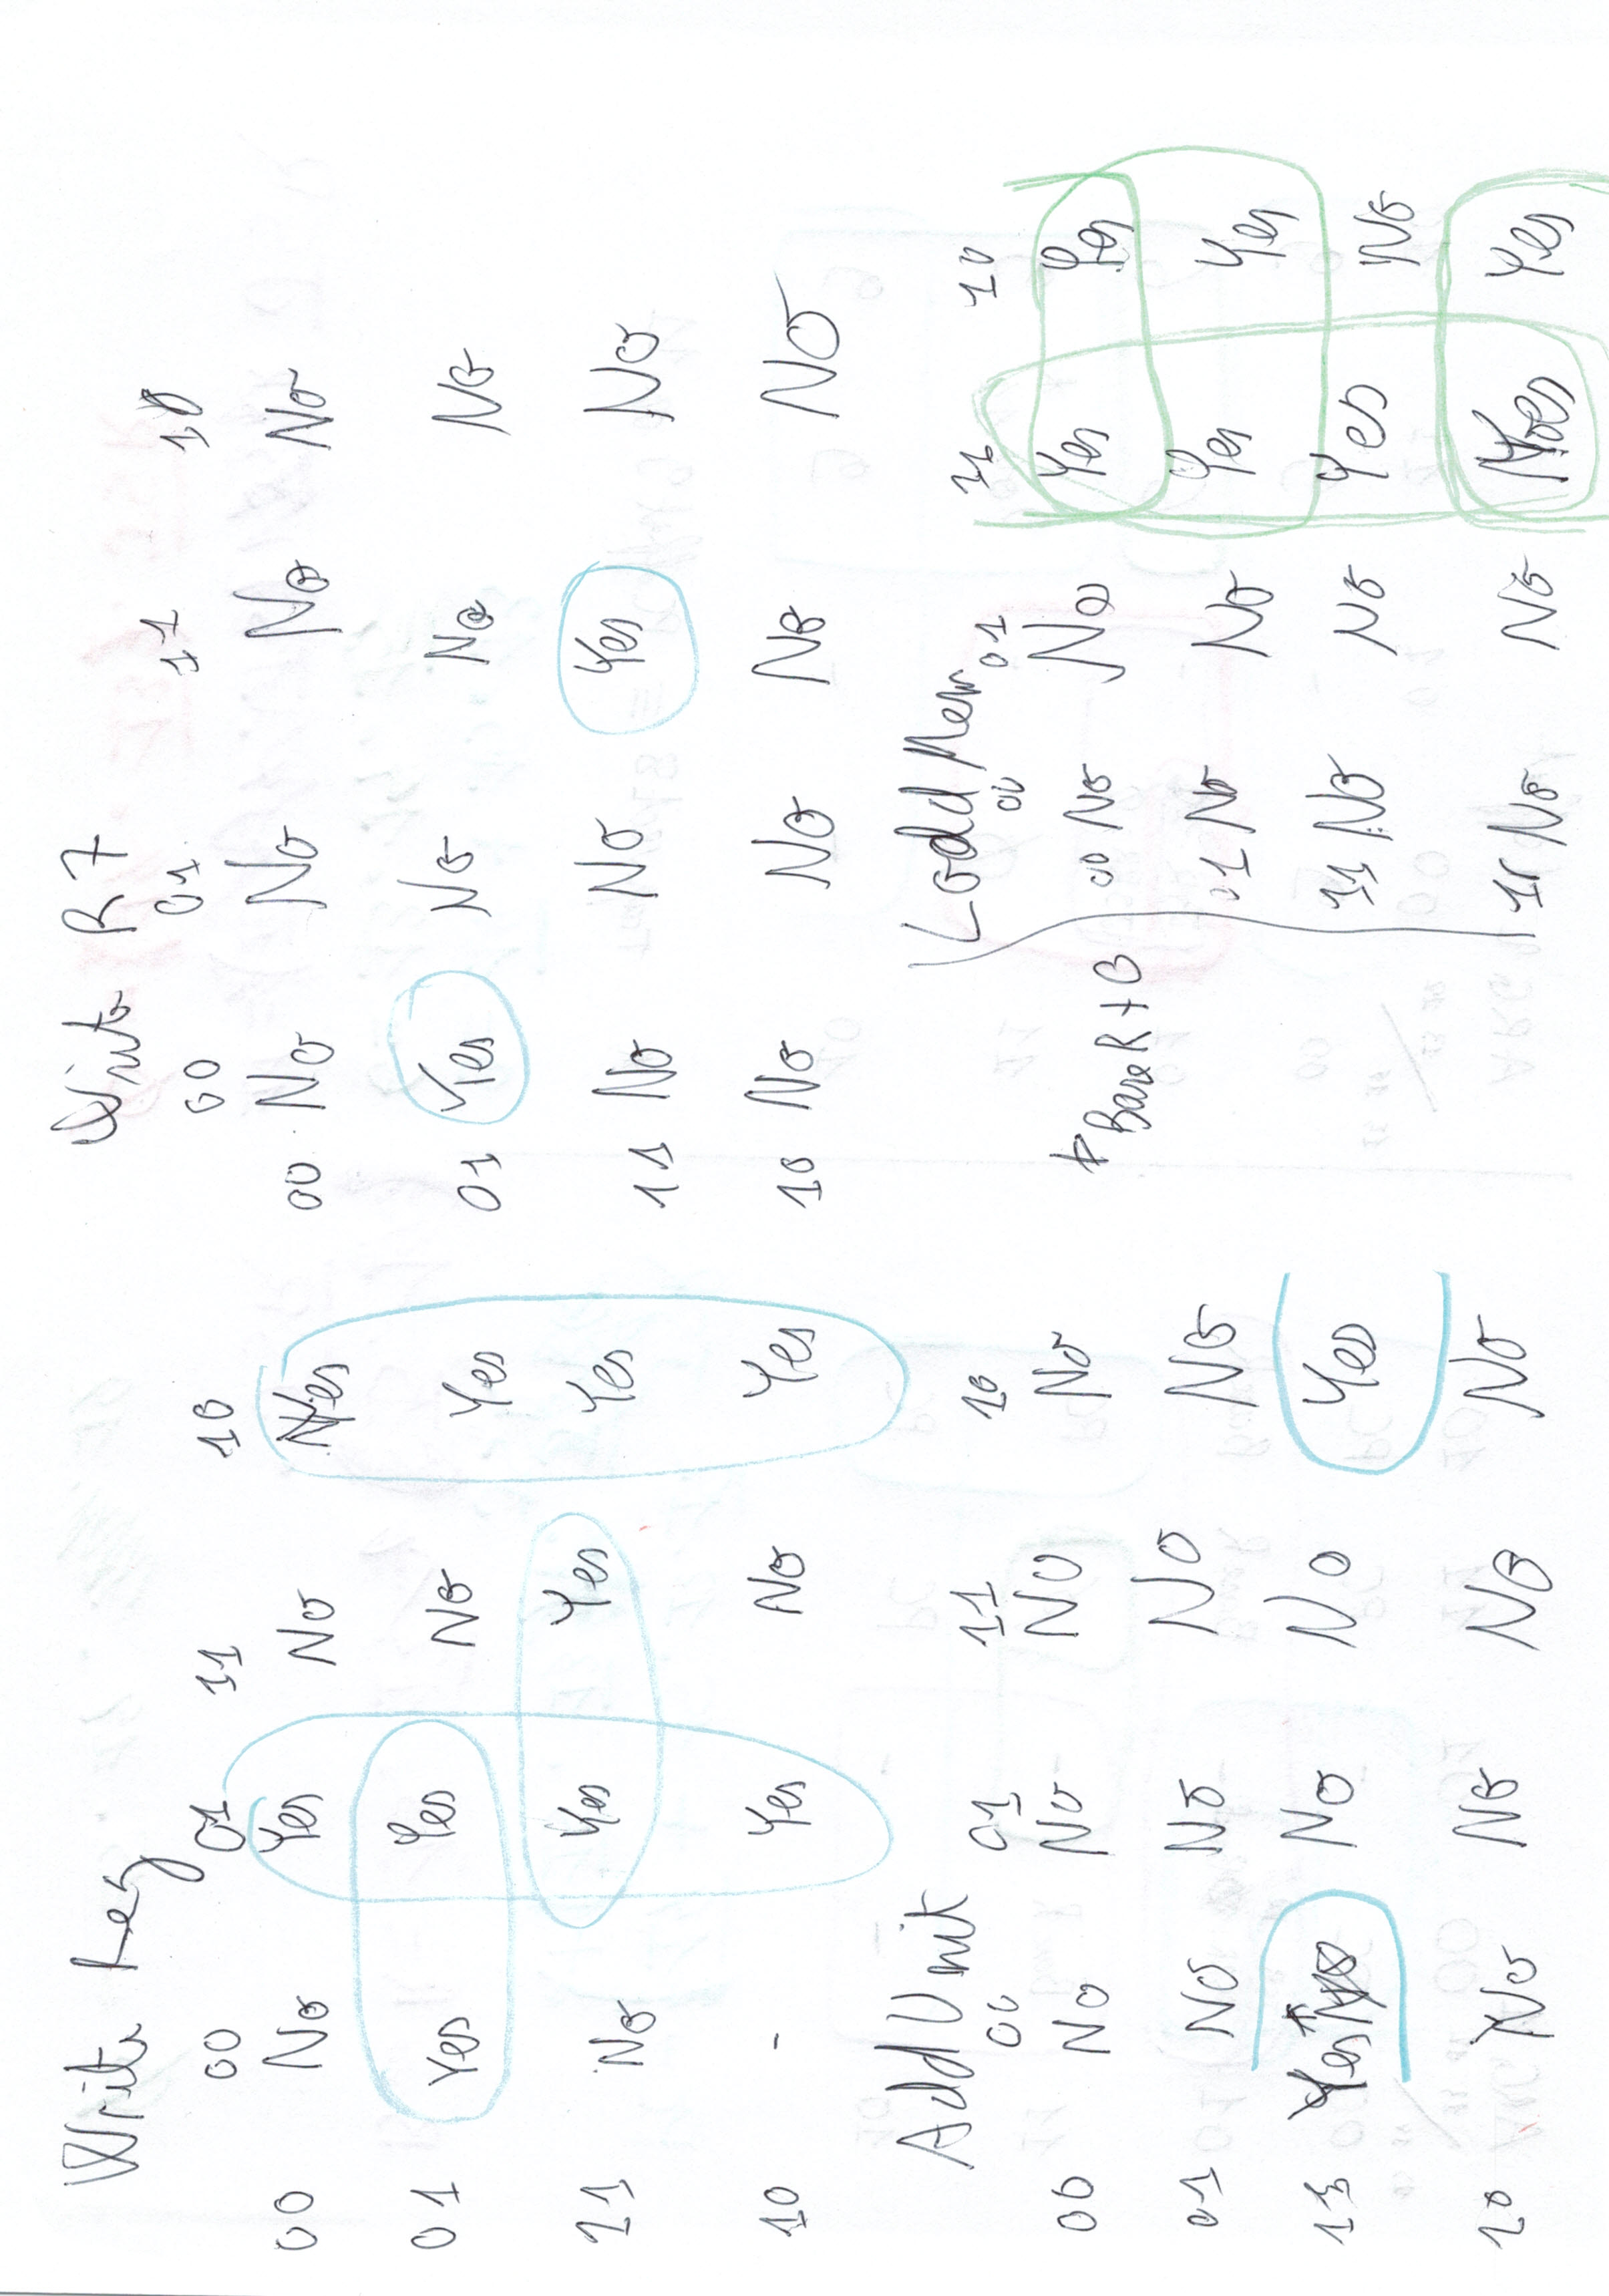 Write Reg
00 01 11 10
00 No Yes No Yes
01 Yes Yes No Yes
11 No Yes Yes Yes
10 - Yes No Yes
Write R7
00 01 11 10
00 No No No No
01 Yes No No No
11 No No Yes No
10 No No No No
Add Unit
00 01 11 10
00 No No No No
01 No No No No
11 Yes* No No Yes
10 No No No No
* BaseR + 0
Load Mem
00 01 11 10
00 No No Yes Yes
01 No No Yes Yes
11 No No Yes No
10 No No Yes Yes